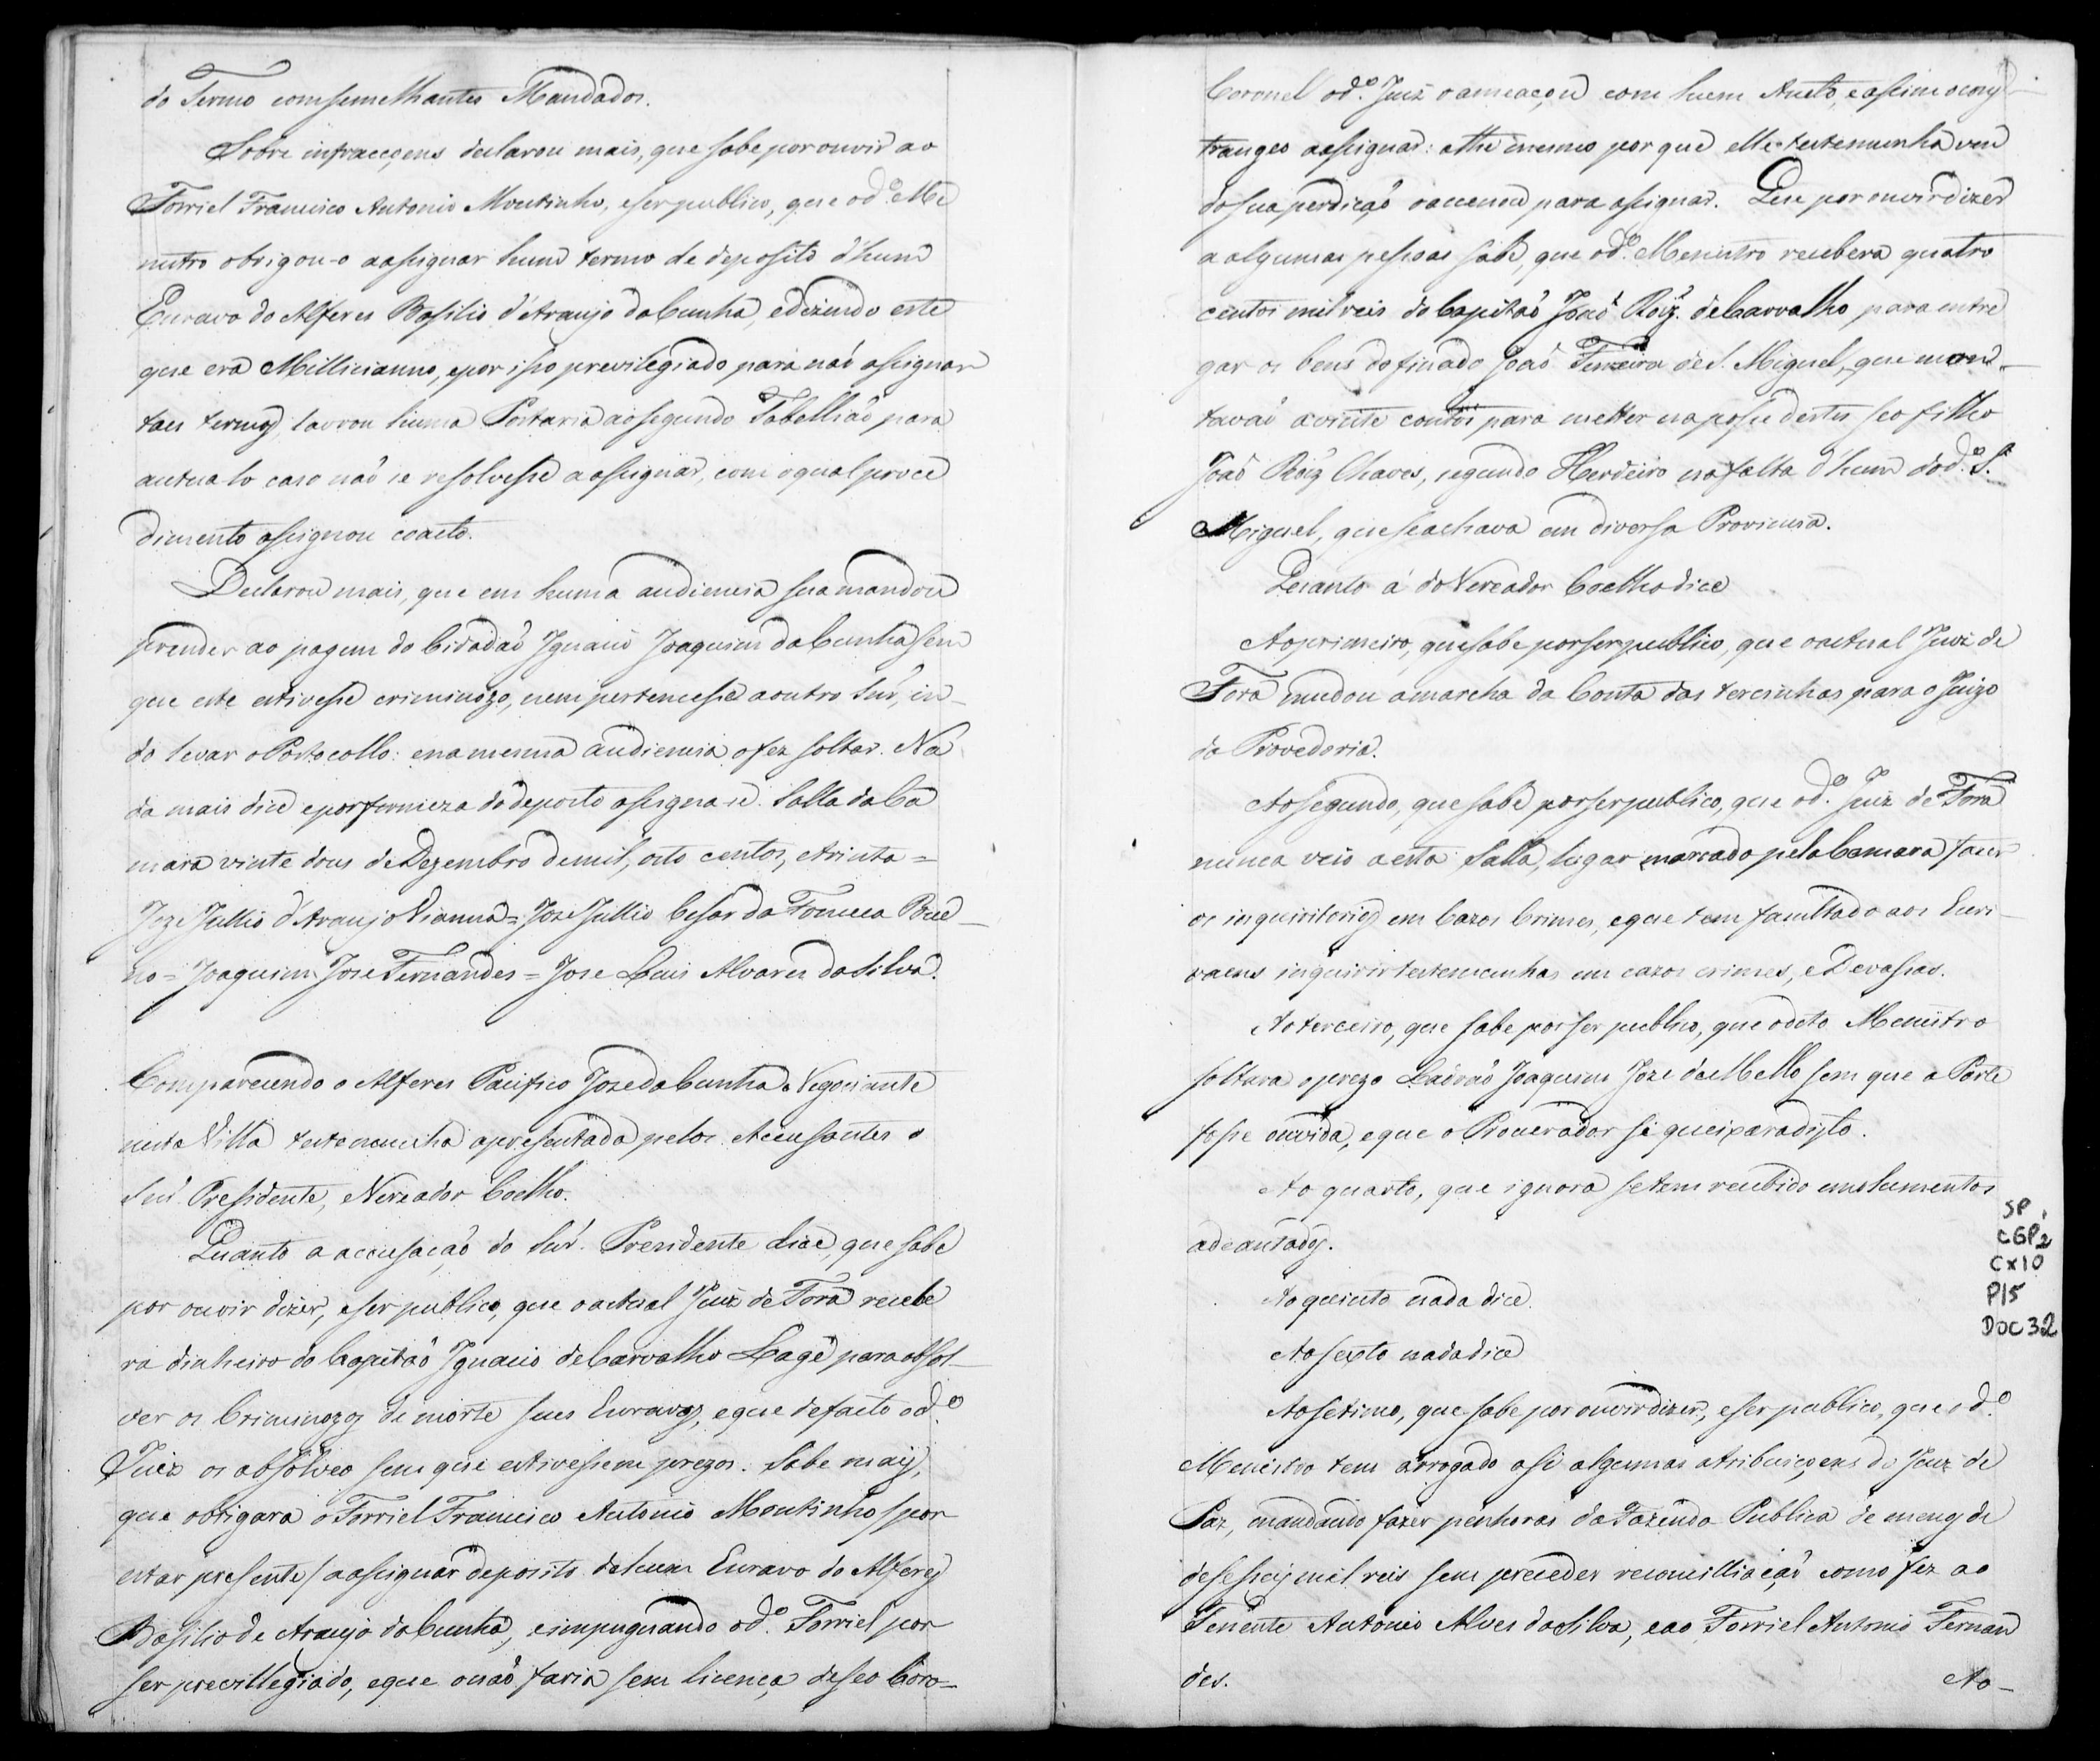 do Termo com semelhantes Mandados.
Sobre infracçoens declarou mais, que sabe por ouvir ao
Forriel Francisco Antonio Moutinho, e ser publico, que o d.o Me
nistro obrigou-o a assignar hum termo de deposito d'hum
Escravo do Alferes Basilio d'Araujo da Cunha, e dizendo este
que era Millicianno, e por isso previlegiado para naõ assignar
taes termos, lavrou huma Portaria ao segundo Tabelliaõ para
autualo caso naõ se resolvesse a assignar, com o qual proce
dimento assignou coacto.
Declarou mais, que em huma audiencia sua mandou
prender ao pagem do Cidadaõ Ignacio Joaquim da Cunha sem
que este estivesse criminozo, nem pertencesse a outro Snr, in-
do levar o Protocollo: e na mesma audiencia o fez soltar. Na
da mais dice e por firmeza do deposto assigna-se. Salla da Ca
mara vinte dous de Dezembro de mil, oito centos, e trinta =
Joze Jullio d'Araujo Vianna = Joze Jullio Cesar da Fonseca Bue-
no = Joaquim Joze Fernandes = Joze Luis Alvares da Silva.
Comparecendo o Alferes Pacifico Joze da Cunha Negociante
nesta Villa testemunha apresentada pelos Accusantes o
Snr. Presidente, e Vereador Coelho.
Quanto a accusaçaõ do Snr. Presidente dice, que sabe
por ouvir dizer, e ser publico, que o actual Juiz de Fora recebe
ra dinheiro do Capitaõ Ignacio de Carvalho Lage para absol-
ver os Criminozos de morte seus Escravos, e que de facto o d.o
Juiz os absolveo sem que estivessem prezos. Sabe mais,
que obrigara o Forriel Francisco Antonio Moutinho / por
estar presente / a assignar deposito de hum Escravo do Alferes
Basilio de Araujo da Cunha, e impugnando o d.o Forriel por
ser previllegiado, e que o naõ faria sem licença de seo Coro-
Coronel o d.o Juiz o ameaçou com hum Aucto, e assim o cons
trangeo a assignar: athe mesmo por que elle testemunha ven
do sua perdiçaõ o acenou para assignar. Que por ouvir dizer
a algumas pessoas sabe, que o d.o Menistro recebera quatro
centos mil reis do Capitaõ Joaõ Roiz. de Carvalho para entre
gar os bens do finado Joaõ Teixeira de S. Miguel, que mon-
tavaõ a vinte contos para metter na posse destes seo filho
Joaõ Roiz Chaves, segundo Herdeiro na falta d'hum do d.o S.
Miguel, que se achava em diversa Provincia.
Quanto á do Vereador Coelho dice
Ao primeiro, que sabe por ser publico, que o actual Juiz de
Fora mudou a marcha da Conta das tercinhas para o Juizo
da Provedoria.
Ao segundo, que sabe por ser publico, que o d.o Juiz de Fora
nunca veio a esta Salla, lugar marcado pela Camara fazer
os inquiritorios em Cazos Crimes, e que tem facultado aos Escri-
vaens inquirir testemunhas em cazos crimes, e Devassas.
Ao terceiro, que sabe por ser publico, que o dito Menistro
soltara o prezo Ladraõ Joaquim Joze de Mello sem que a Parte
fosse ouvida, e que o Procurador se queixara disto.
Ao quarto, que ignora se tem recebido emolumentos
adeantados.
Ao quinto nada dice.
Ao sexto nada dice
Ao setimo, que sabe por ouvir dizer, e ser publico, que o d.o
Menistro tem arrogado a si algumas atribuiçoens do Juiz de
Paz, mandando fazer penhoras da Fazenda Publica de menos de
desesseis mil reis sem preceder reconcilliaçaõ como fez ao
Tenente Antonio Alves da Silva, e ao Forriel Antonio Fernan
des.
Ao-
SP
CGP2
Cx10
P15
DOC 32